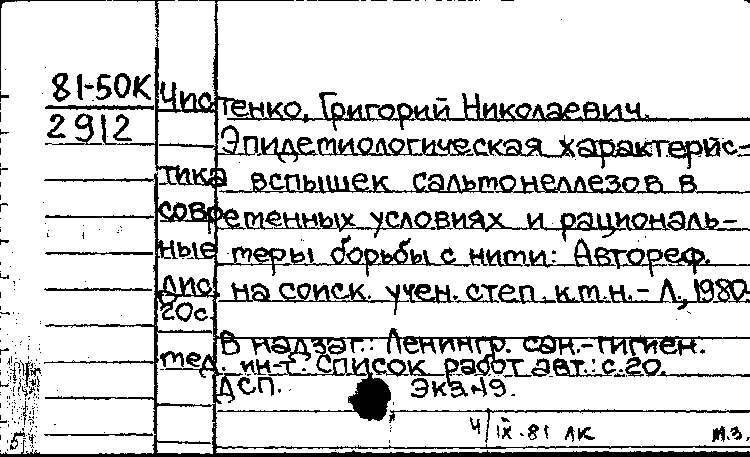 81-50К
2912
Чистенко, Григорий Николаевич.
Эпидемиологическая характерис-
тика вспышек сальмонеллезов в
современных условиях и рациональ-
ные меры борьбы с ними: Автореф.
дис. на соиск. учен. степ. к.м.н. - Л., 1980.
20с.
В надзаг.: Ленингр. сан.-гигиен.
мед. ин-т. Список работ авт.: с.20.
ДСП. Экз.№9.
4/IX-81 ЛК м.з.
5